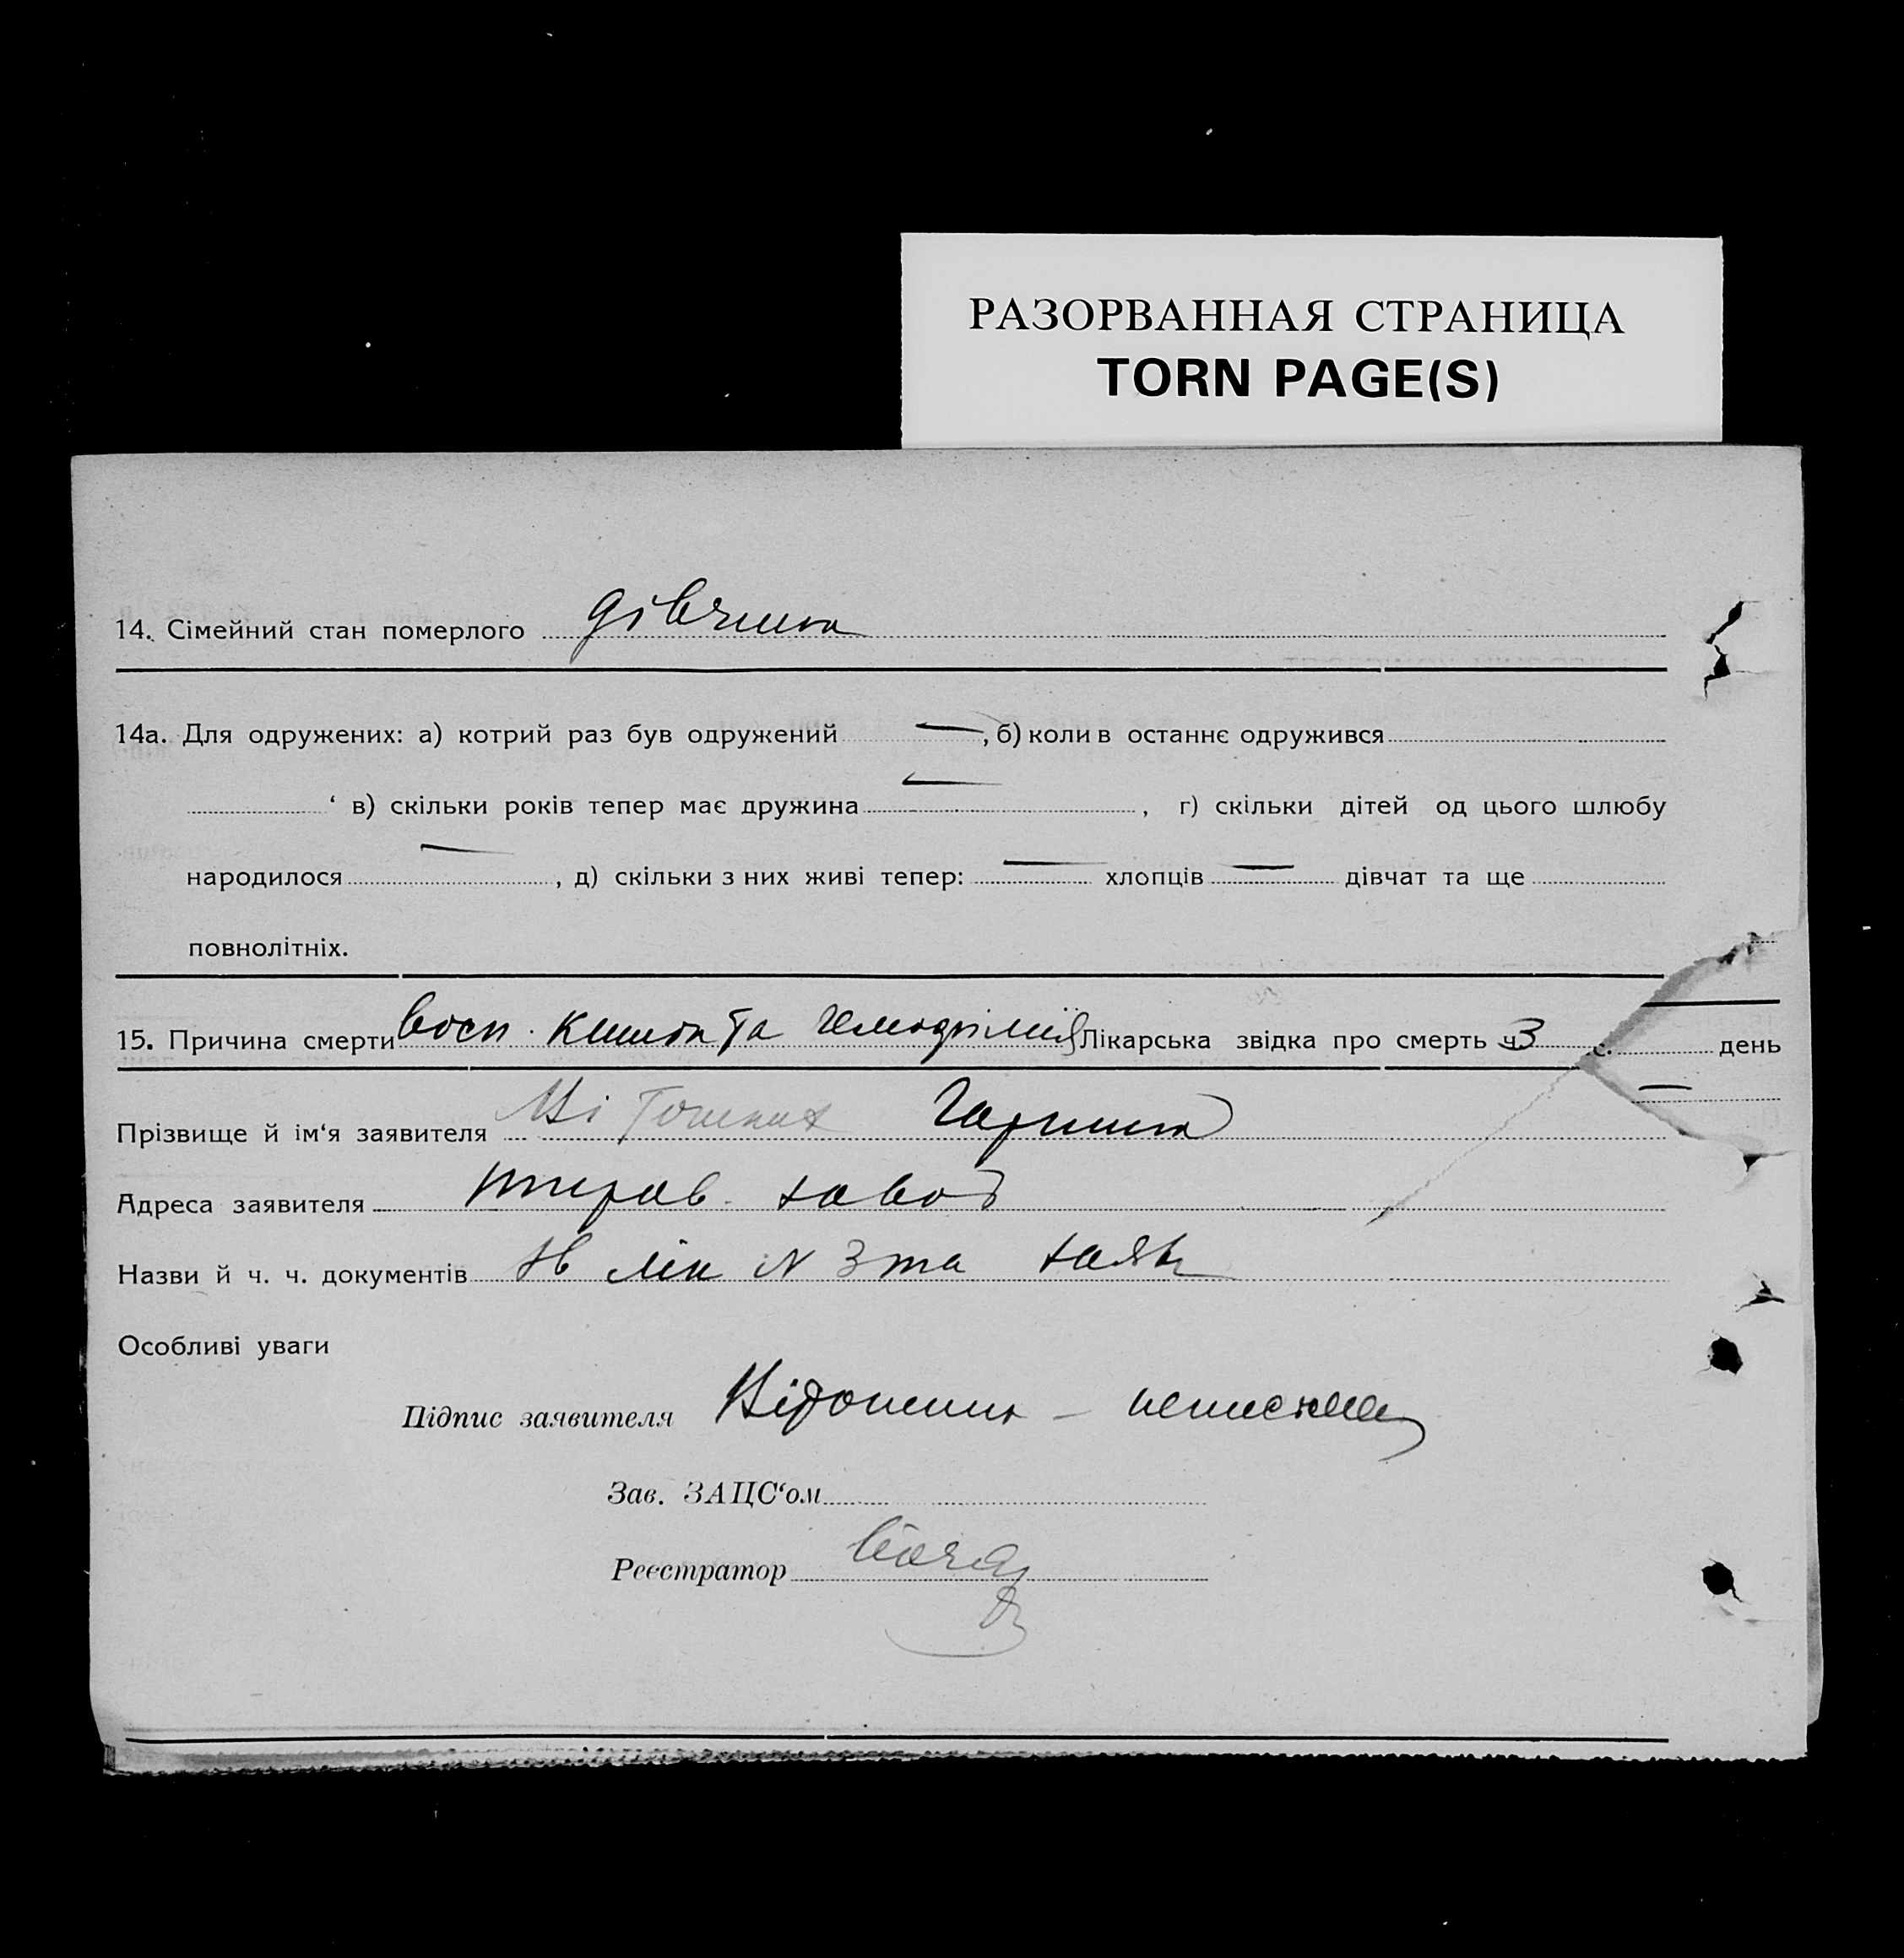 РАЗОРВАННАЯ СТРАНИЦА
TORN PAGE(S)
14. Сімейний стан померлого дівчина
14а. Для одружених: а) котрий раз був одружений —, б) коли в останнє одружився
‘ в) скільки років тепер має дружина —, г) скільки дітей од цього шлюбу
народилося —, д) скільки з них живі тепер: — хлопців — дівчат та ще
повнолітніх.
15. Причина смерти восп. кишок та Лікарська звідка про смерть ч. 3 с. день
—
Прізвище й ім‘я заявителя
Адреса заявителя завод
Назви й ч. ч. документів зв лік N 3 та заяв
Особливі уваги
Підпис заявителя —
Зав. ЗАЦС‘ом
Реєстратор